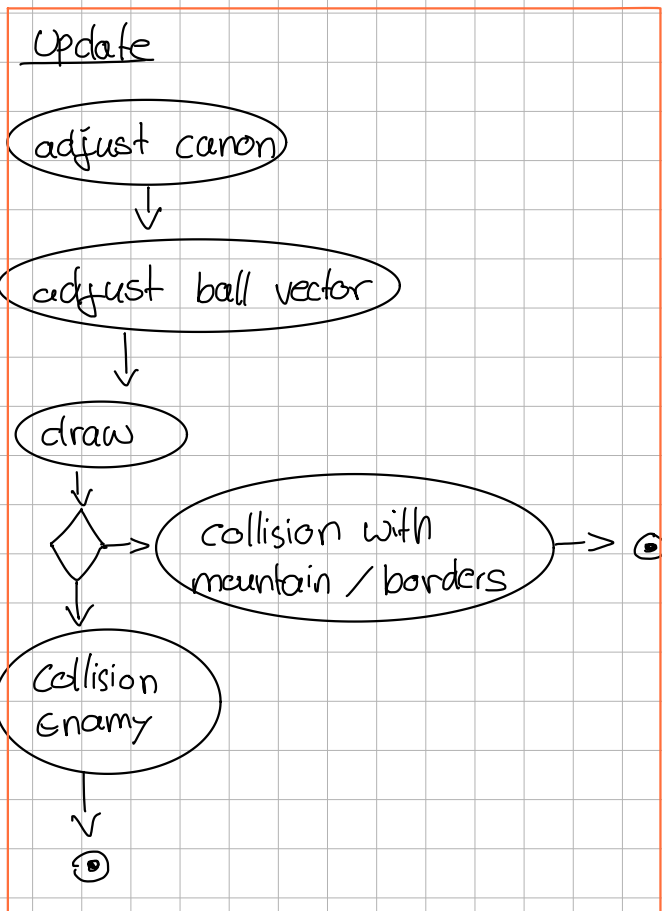 Update
adjust canon
adjust ball vector
draw
collision with
mountain / borders
Collision
Enamy